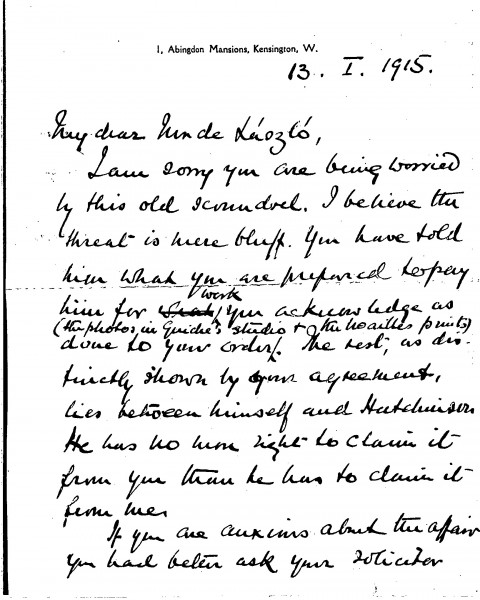 1, Abingdon Mansions, Kensington, W.
13. I. 1915.
My dear Mr de László,
I am sorry you are being worried
by this old scoundrel. I believe the
threat is mere bluff. You have told
him what you are prepared to pay
him for work you acknowledge as
(the photos, in Guidé's studio & the prints)
done to your order. The rest, as dis-
tinctly shown by your agreement,
lies between himself and Hutchinson
He has no more right to claim it
from you than he has to claim it
from me.
If you are anxious about the affair
you had better ask your solicitor